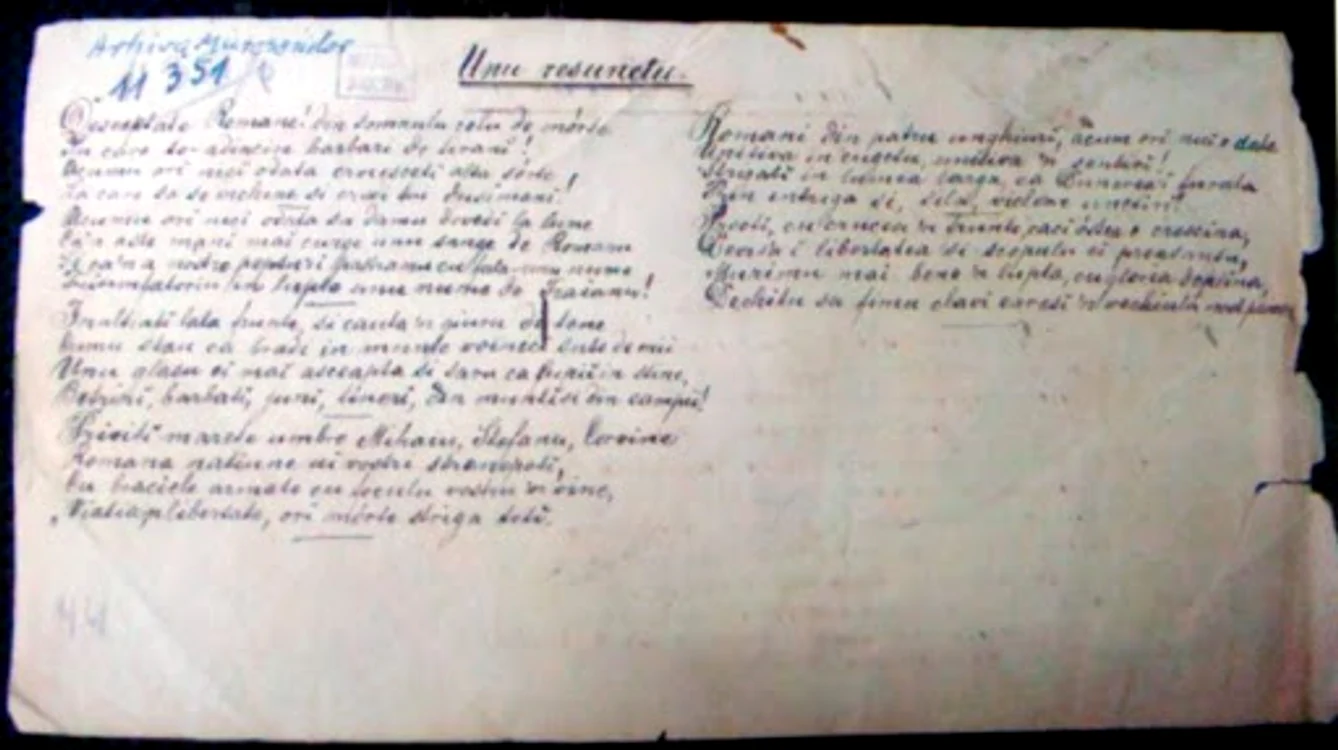 Arhiva Muresenilor
11 351
Unu resunetu.
Desceptate Romane! din somnulu celu de mórte
In care te-adâncira barbarii de tirani!
Acumu ori nici odata croiesceti alta sórte,
La care sa se inchine si cruzi tei dusimani!
Acumu ori nici odata sa damu dovedi la lume
Ca'n aste mani mai curge unu sange de Romanu
Si ca'n a nostre pepturi pastramu cu fala unu nume
Triumfatoriu in lupte unu nume de Traianu!
Inaltiati lata frunte, si cauta'n giuru de tene
Cumu stau ca bradi in munte voinici sute de mii
Unu glasu ei mai ascepta si saru ca lupii in stene,
Betrani, barbati, juni, tineri, din munti si din campii!
Priviti marete umbre Mihaiu, Stefanu, Corvine
Romana natiune ai vostri stranepoti,
Cu braciele armate cu foculu vostru'n vine,
"Viatia'n libertate, ori mórte striga toti.
Romani din patru unghiuri, acum ori nici odata
Uniti-va in cugetu, uniti-va'n sentiri!
Strigati in lumea larga, ca Dunarea-i furata
Prin intriga si, sila, viclene uneltiri!
Preoti, cu crucea'n frunte, caci óstea e crestina,
Devisa-i libertatea si scopulu ei preasantu,
Murimu mai bene'n lupta, cu gloria deplina,
Decâtu sa fimu sclavi earasi'n vechiulu nost
44